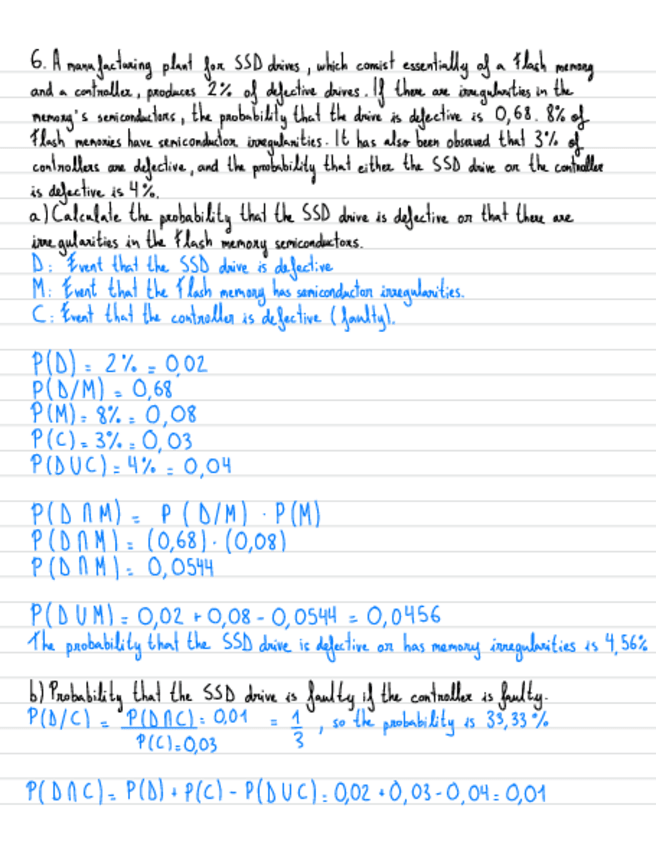 6. A manufacturing plant for SSD drives, which consist essentially of a flash memory
and a controller, produces 2% of defective drives. If there are irregularities in the
memory's semiconductors, the probability that the drive is defective is 0,68. 8% of
flash memories have semiconductor irregularities. It has also been observed that 3% of
controllers are defective, and the probability that either the SSD drive or the controller
is defective is 4%.
a) Calculate the probability that the SSD drive is defective or that there are
irregularities in the flash memory semiconductors.
D: Event that the SSD drive is defective
M: Event that the flash memory has semiconductor irregularities.
C: Event that the controller is defective (faulty).
P(D) = 2% = 0,02
P(D/M) = 0,68
P(M) = 8% = 0,08
P(C) = 3% = 0,03
P(D∪C) = 4% = 0,04
P(D∩M) = P(D/M) · P(M)
P(D∩M) = (0,68) · (0,08)
P(D∩M) = 0,0544
P(D∪M) = 0,02 + 0,08 - 0,0544 = 0,0456
The probability that the SSD drive is defective or has memory irregularities is 4,56%
b) Probability that the SSD drive is faulty if the controller is faulty.
P(D/C) = P(D∩C) = 0,01 / P(C) = 0,03 = 1/3, so the probability is 33,33%
P(D∩C) = P(D) + P(C) - P(D∪C) = 0,02 + 0,03 - 0,04 = 0,01